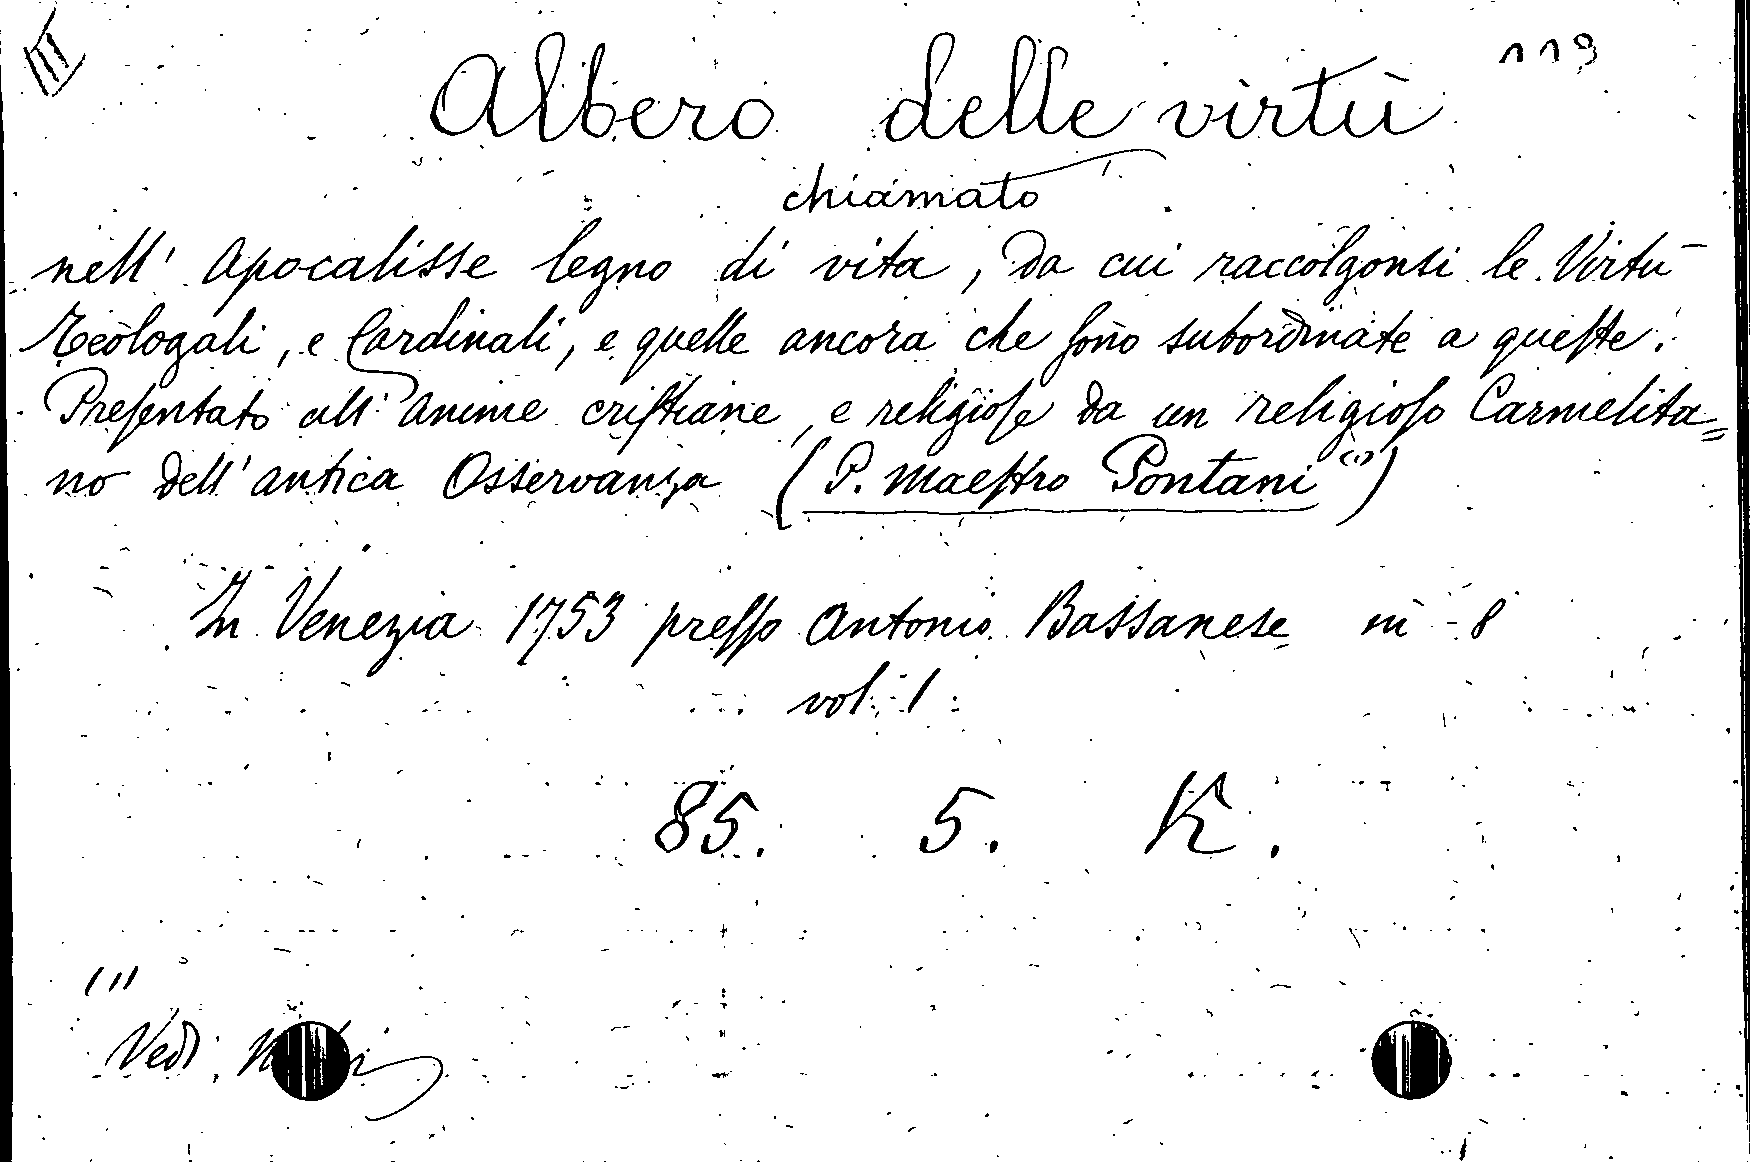 III
119
Albero delle virtù
chiamato
nell' Apocalisse legno di vita, da cui raccolgonsi le Virtù
Teologali, e Cardinali, e quelle ancora che sono subordinate a queste.
Presentato all' Anime cristiane, e religiose da un religioso Carmelita=
no dell' antica Osservanza (P. Maestro Pontani (1))
In Venezia 1753 presso Antonio Bassanese in 8
vol. 1
85. 5. K.
(1)
Vedi